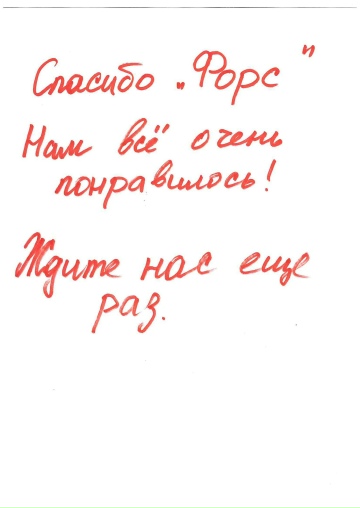 Спасибо „Форс"
Нам всё очень
понравилось!
Ждите нас еще
раз.